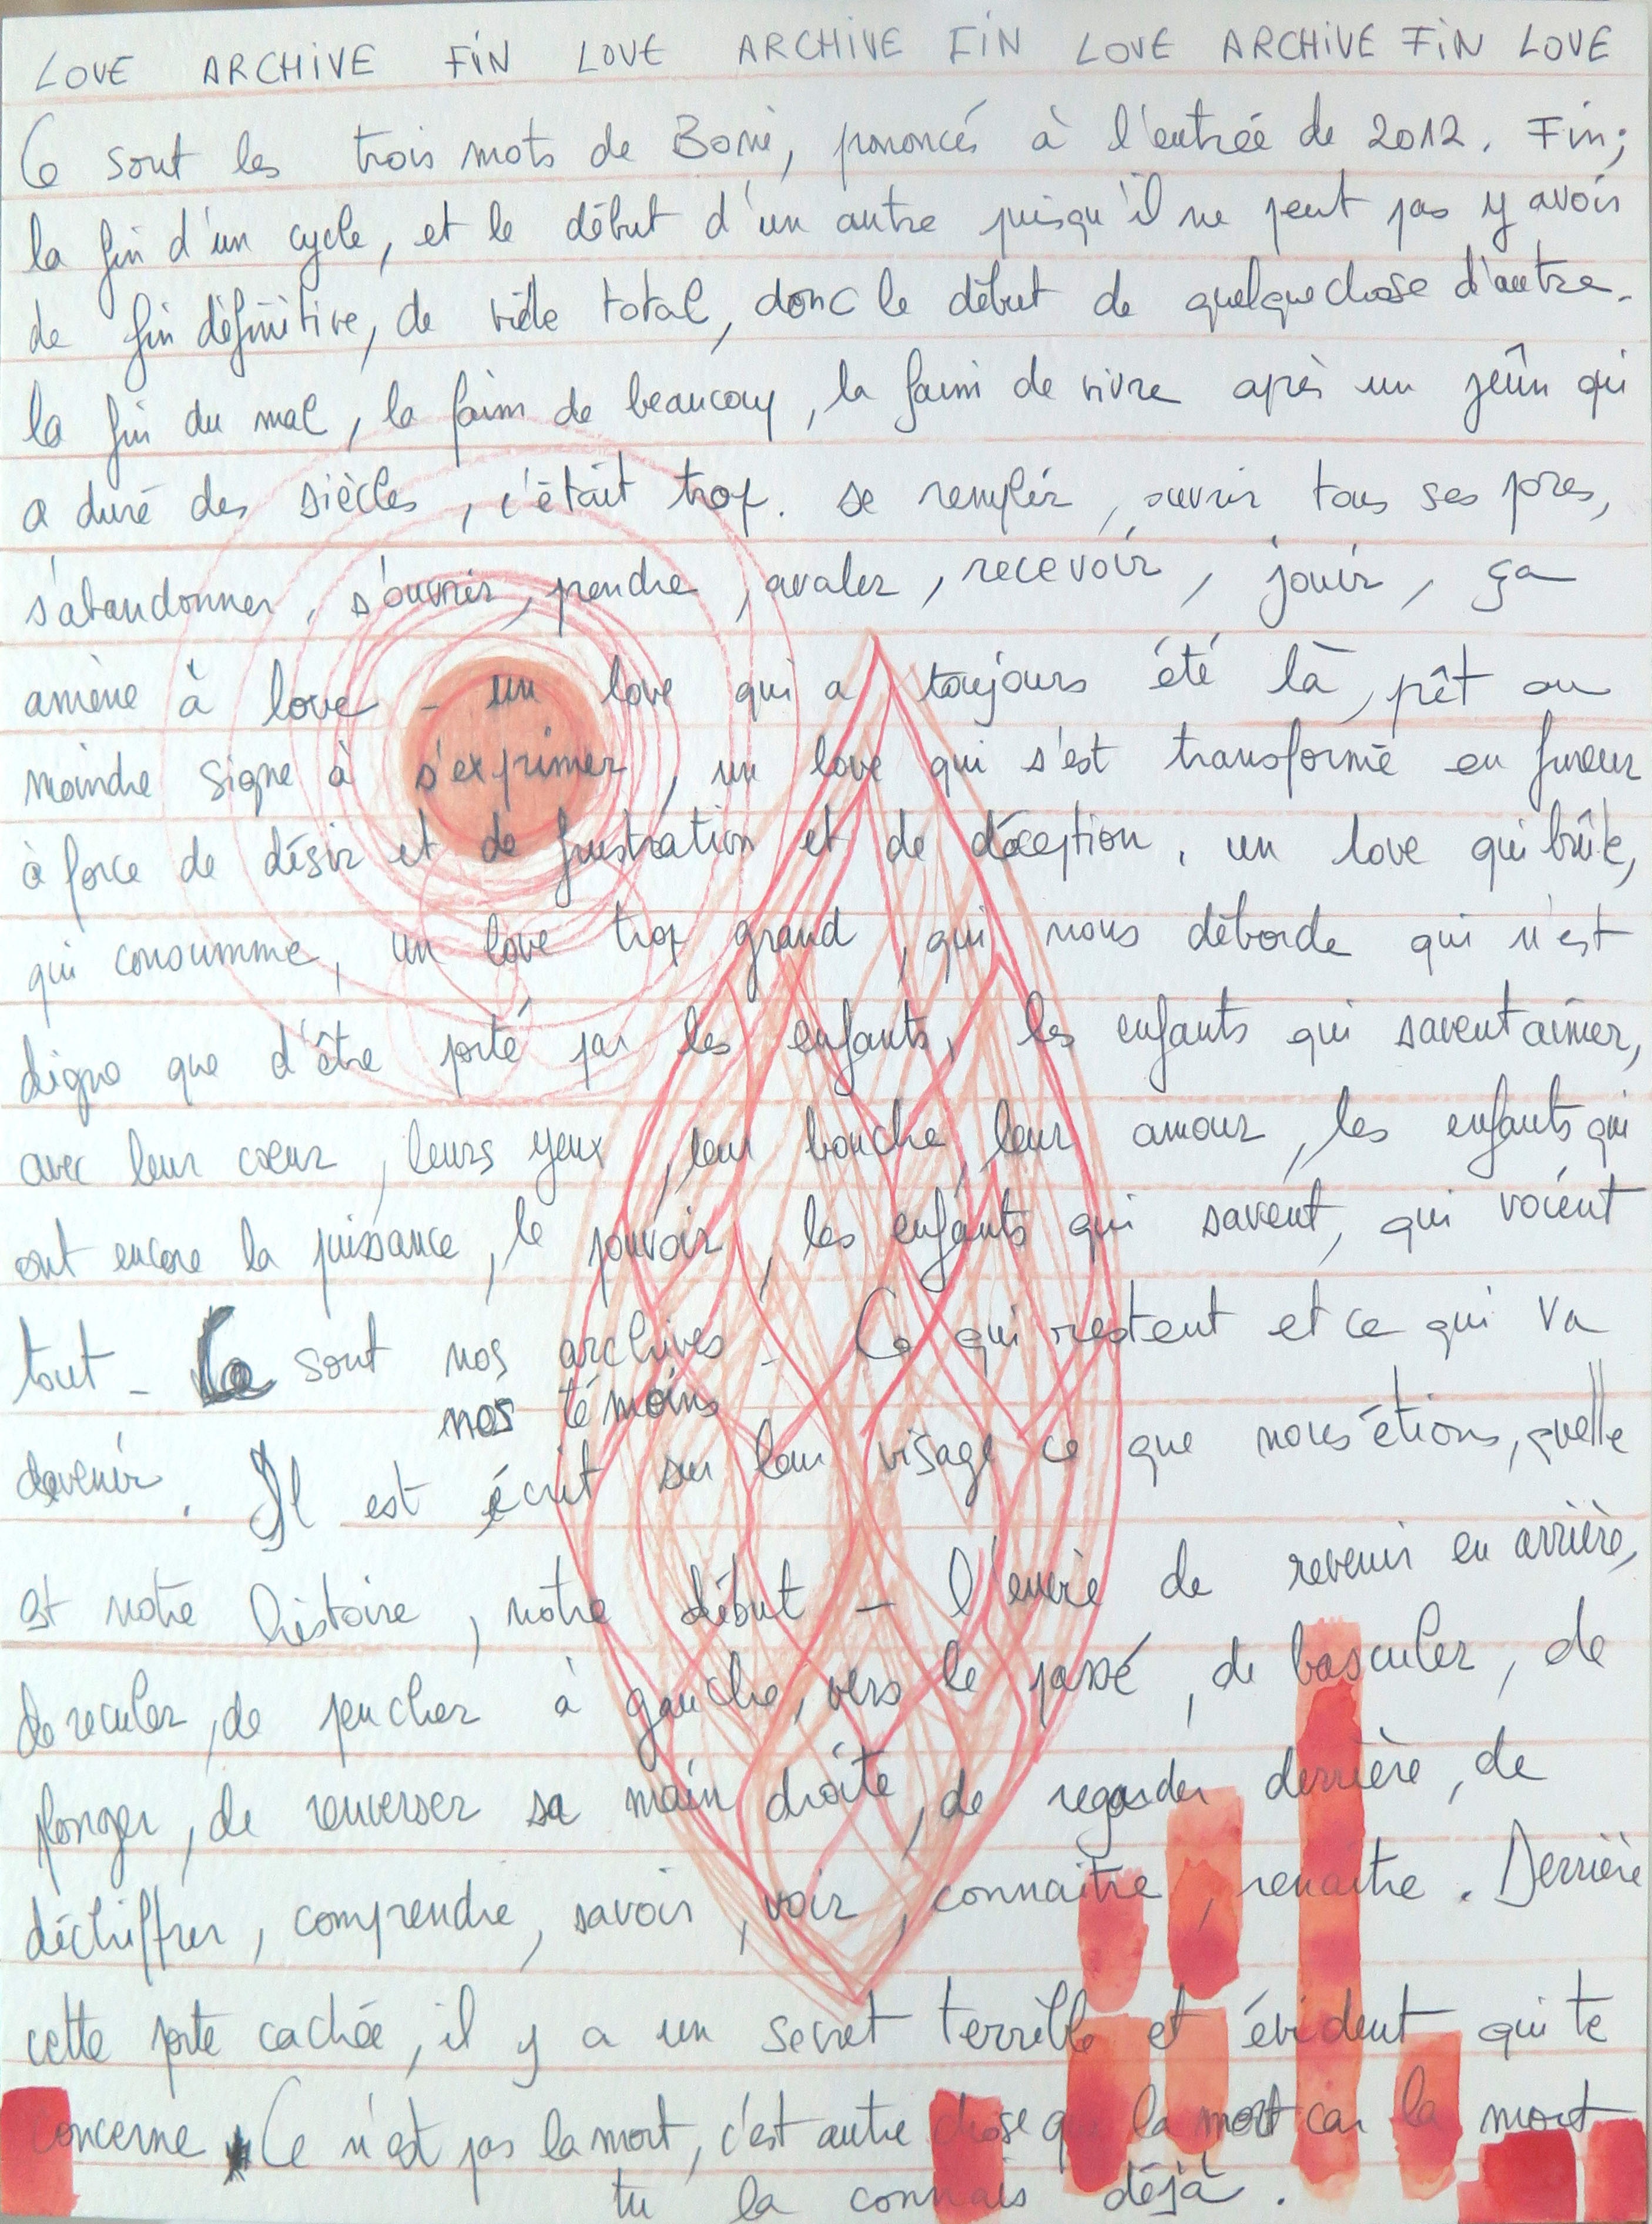 LOVE ARCHIVE FIN LOVE ARCHIVE FIN LOVE ARCHIVE FIN LOVE
Ce sont les trois mots de , prononcés à l'entrée de 2012. Fin ;
la fin d'un cycle, et le début d'un autre puisqu'il ne peut pas y avoir
de fin définitive, de vide total, donc le début de quelquechose d'autre.
la fin du mal, la faim de beaucoup, la faim de vivre après un jeûn qui
a duré des siècles, c'était trop. se remplir, ouvrir tous ses pores,
s'abandonner, s'ouvrir, prendre, avaler, recevoir, jouir, ça
amène à love - un love qui a toujours été là, prêt au
moindre signe à s'exprimer, un love qui s'est transformé en fureur
à force de désir et de frustration et de déception, un love qui brûle,
qui consumme, un love trop grand, qui nous déborde qui n'est
digne que d'être porté par les enfants, les enfants qui savent aimer,
avec leur coeur, leurs yeux, leur bouche, leur amour, les enfants qui
ont encore la puissance, le pouvoir, les enfants qui savent, qui voient
tout - Ce sont nos archives - Ce qui restent et ce qui va
nos témoins
devenir. Il est écrit sur leur visage ce que nous étions, quelle
est notre histoire, notre début - l'envie de revenir en arrière,
de reculer, de pencher à gauche, vers le passé, de basculer, de
plonger, de renverser sa main droite, de regarder derrière, de
déchiffrer, comprendre, savoir, voir, connaitre, renaitre. Derrière
cette porte cachée, il y a un secret terrible et évident qui te
concerne. Ce n'est pas la mort, c'est autre chose que la mort car la mort
tu la connais déjà.